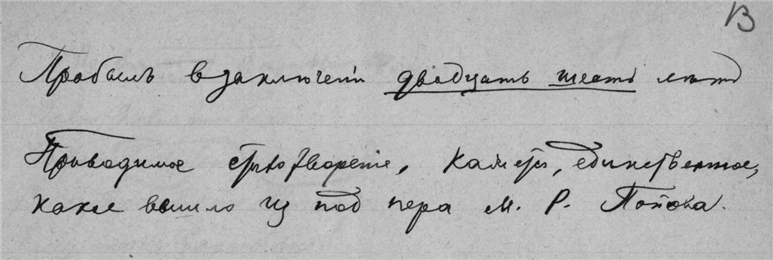 13
Пробылъ въ заключеніи двадцать шесть лѣтъ
Приводимое стихотвореніе, кажется, единственное,
какое вышло из под пера М. Р. Попова.